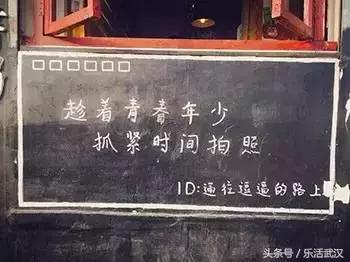 □□□□□□
趁着青春年少
抓紧时间拍照
ID:通往逗逼的路上
头条号／乐活武汉